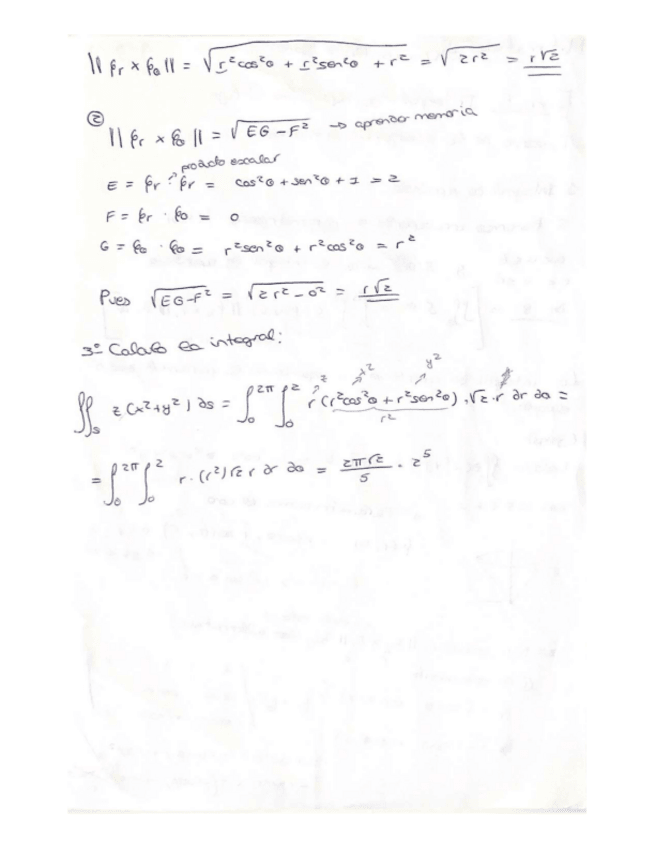 ||φr × φθ|| = √(r²cos²θ + r²sen²θ + r²) = √(2r²) = r√2
② ||φr × φθ|| = √(EG-F²) → aprender memoria
producto escalar
E = φr · φr = cos²θ + sen²θ + 1 = 2
F = φr · φθ = 0
G = φθ · φθ = r²sen²θ + r²cos²θ = r²
Pues √(EG-F²) = √(2r²-0²) = r√2
3º Calculo la integral:
z x² y²
∬s z(x²+y²) ds = ∫₀^2π ∫₀^2 r(r²cos²θ + r²sen²θ) · √2 · r dr dθ =
r²
= ∫₀^2π ∫₀^2 r · (r²)√2 r dr dθ = 2π√2/5 · 2⁵